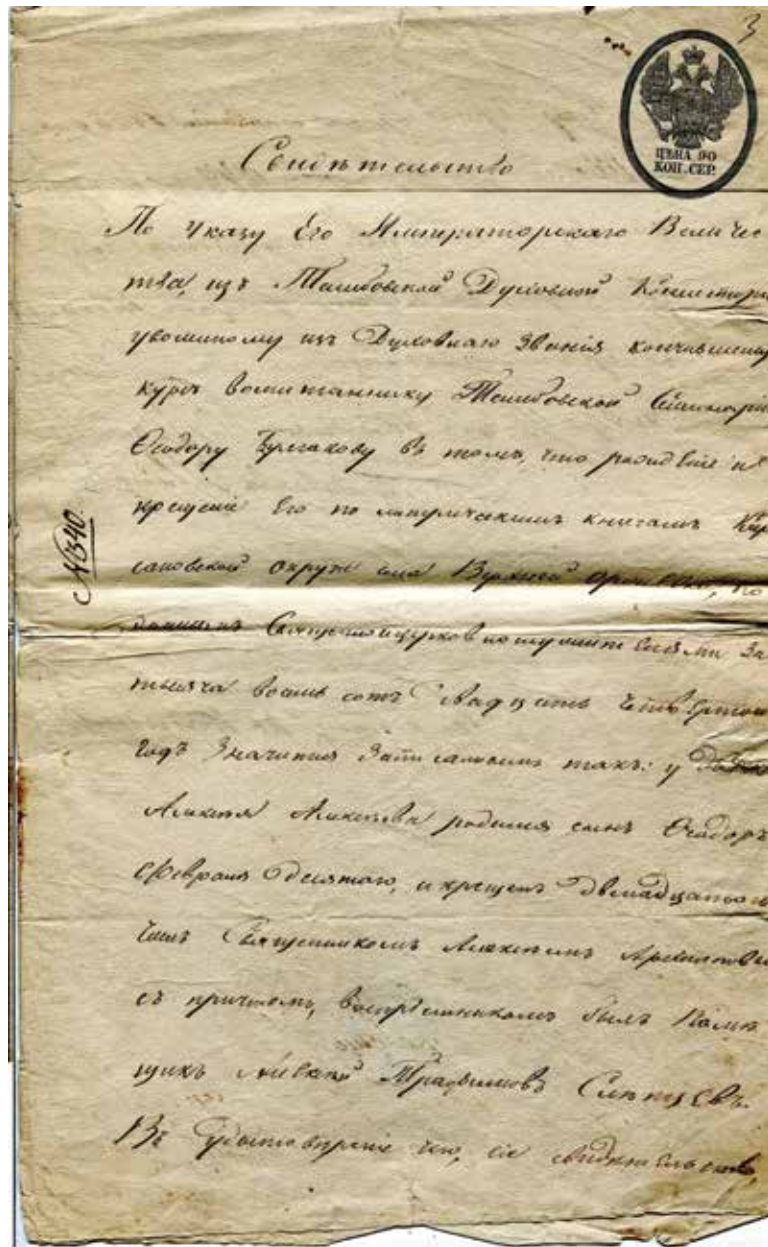 3
ЦѢНА 90
КОП. СЕР.
Свидѣтельство
По Указу Его Императорскаго Величес
тва, изъ Тамбовской Духовной Консисторіи
уволенному изъ Духовнаго Званія кончившему
курсъ воспитаннику Тамбовской Семинаріи
Ѳеодору Булгакову въ томъ, что рожденіе и
крещеніе Его по метрическимъ книгамъ Кир
сановской округи села Верхней по
даннымъ Священноцерковнослужителями за
тысяча восемь сотъ двадцать четвертый
годъ Значится Записаннымъ такъ: у
Алексѣя Алексѣева родился сынъ Ѳеодоръ
Февраля десятаго, и крещенъ двенадцатаго
Священникомъ Алексѣемъ
съ причтомъ, воспріемникомъ былъ Помѣ
щикъ Трофимовъ Слѣпцовъ.
Въ Удостовѣреніе чего, сіе свидѣтельство
№340.